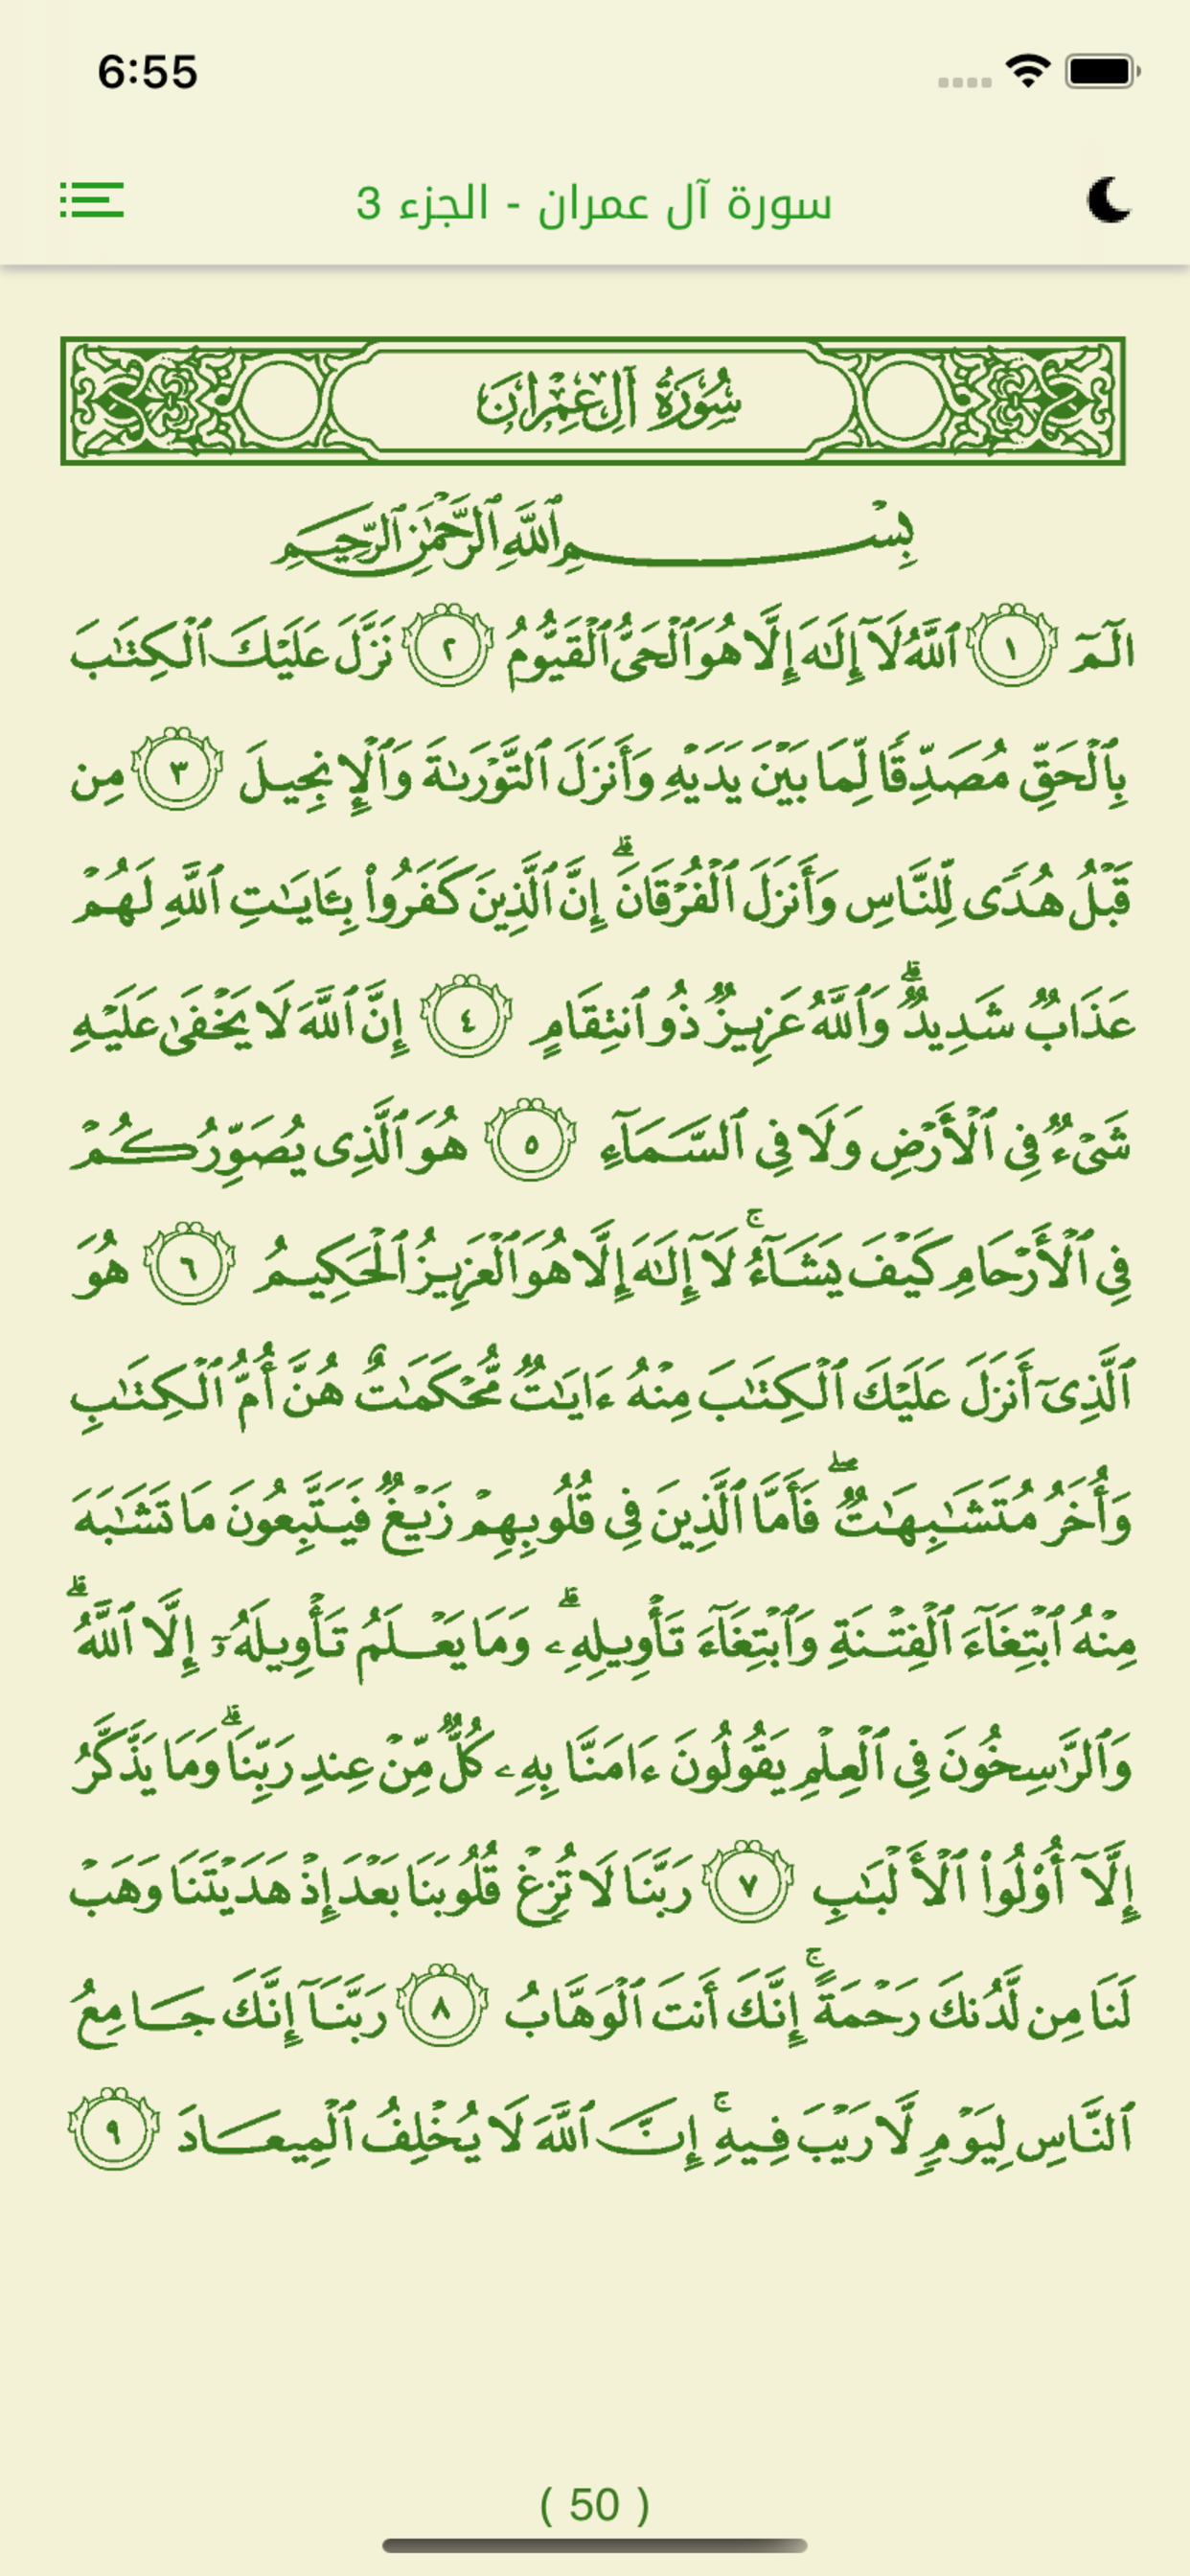 6:55
سورة آل عمران - الجزء 3
سُورَةُ آلِ عِمْرَانَ
بِسْمِ ٱللَّهِ ٱلرَّحْمَٰنِ ٱلرَّحِيمِ
الٓمٓ ١ ٱللَّهُ لَآ إِلَٰهَ إِلَّا هُوَ ٱلْحَىُّ ٱلْقَيُّومُ ٢ نَزَّلَ عَلَيْكَ ٱلْكِتَٰبَ
بِٱلْحَقِّ مُصَدِّقًا لِّمَا بَيْنَ يَدَيْهِ وَأَنزَلَ ٱلتَّوْرَىٰةَ وَٱلْإِنجِيلَ ٣ مِن
قَبْلُ هُدًى لِّلنَّاسِ وَأَنزَلَ ٱلْفُرْقَانَ ۗ إِنَّ ٱلَّذِينَ كَفَرُوا۟ بِـَٔايَٰتِ ٱللَّهِ لَهُمْ
عَذَابٌ شَدِيدٌ ۗ وَٱللَّهُ عَزِيزٌ ذُو ٱنتِقَامٍ ٤ إِنَّ ٱللَّهَ لَا يَخْفَىٰ عَلَيْهِ
شَىْءٌ فِى ٱلْأَرْضِ وَلَا فِى ٱلسَّمَآءِ ٥ هُوَ ٱلَّذِى يُصَوِّرُكُمْ
فِى ٱلْأَرْحَامِ كَيْفَ يَشَآءُ ۚ لَآ إِلَٰهَ إِلَّا هُوَ ٱلْعَزِيزُ ٱلْحَكِيمُ ٦ هُوَ
ٱلَّذِىٓ أَنزَلَ عَلَيْكَ ٱلْكِتَٰبَ مِنْهُ ءَايَٰتٌ مُّحْكَمَٰتٌ هُنَّ أُمُّ ٱلْكِتَٰبِ
وَأُخَرُ مُتَشَٰبِهَٰتٌ ۖ فَأَمَّا ٱلَّذِينَ فِى قُلُوبِهِمْ زَيْغٌ فَيَتَّبِعُونَ مَا تَشَٰبَهَ
مِنْهُ ٱبْتِغَآءَ ٱلْفِتْنَةِ وَٱبْتِغَآءَ تَأْوِيلِهِۦ ۗ وَمَا يَعْلَمُ تَأْوِيلَهُۥٓ إِلَّا ٱللَّهُ ۗ
وَٱلرَّٰسِخُونَ فِى ٱلْعِلْمِ يَقُولُونَ ءَامَنَّا بِهِۦ كُلٌّ مِّنْ عِندِ رَبِّنَا ۗ وَمَا يَذَّكَّرُ
إِلَّآ أُو۟لُوا۟ ٱلْأَلْبَٰبِ ٧ رَبَّنَا لَا تُزِغْ قُلُوبَنَا بَعْدَ إِذْ هَدَيْتَنَا وَهَبْ
لَنَا مِن لَّدُنكَ رَحْمَةً ۚ إِنَّكَ أَنتَ ٱلْوَهَّابُ ٨ رَبَّنَآ إِنَّكَ جَامِعُ
ٱلنَّاسِ لِيَوْمٍ لَّا رَيْبَ فِيهِ ۚ إِنَّ ٱللَّهَ لَا يُخْلِفُ ٱلْمِيعَادَ ٩
( 50 )